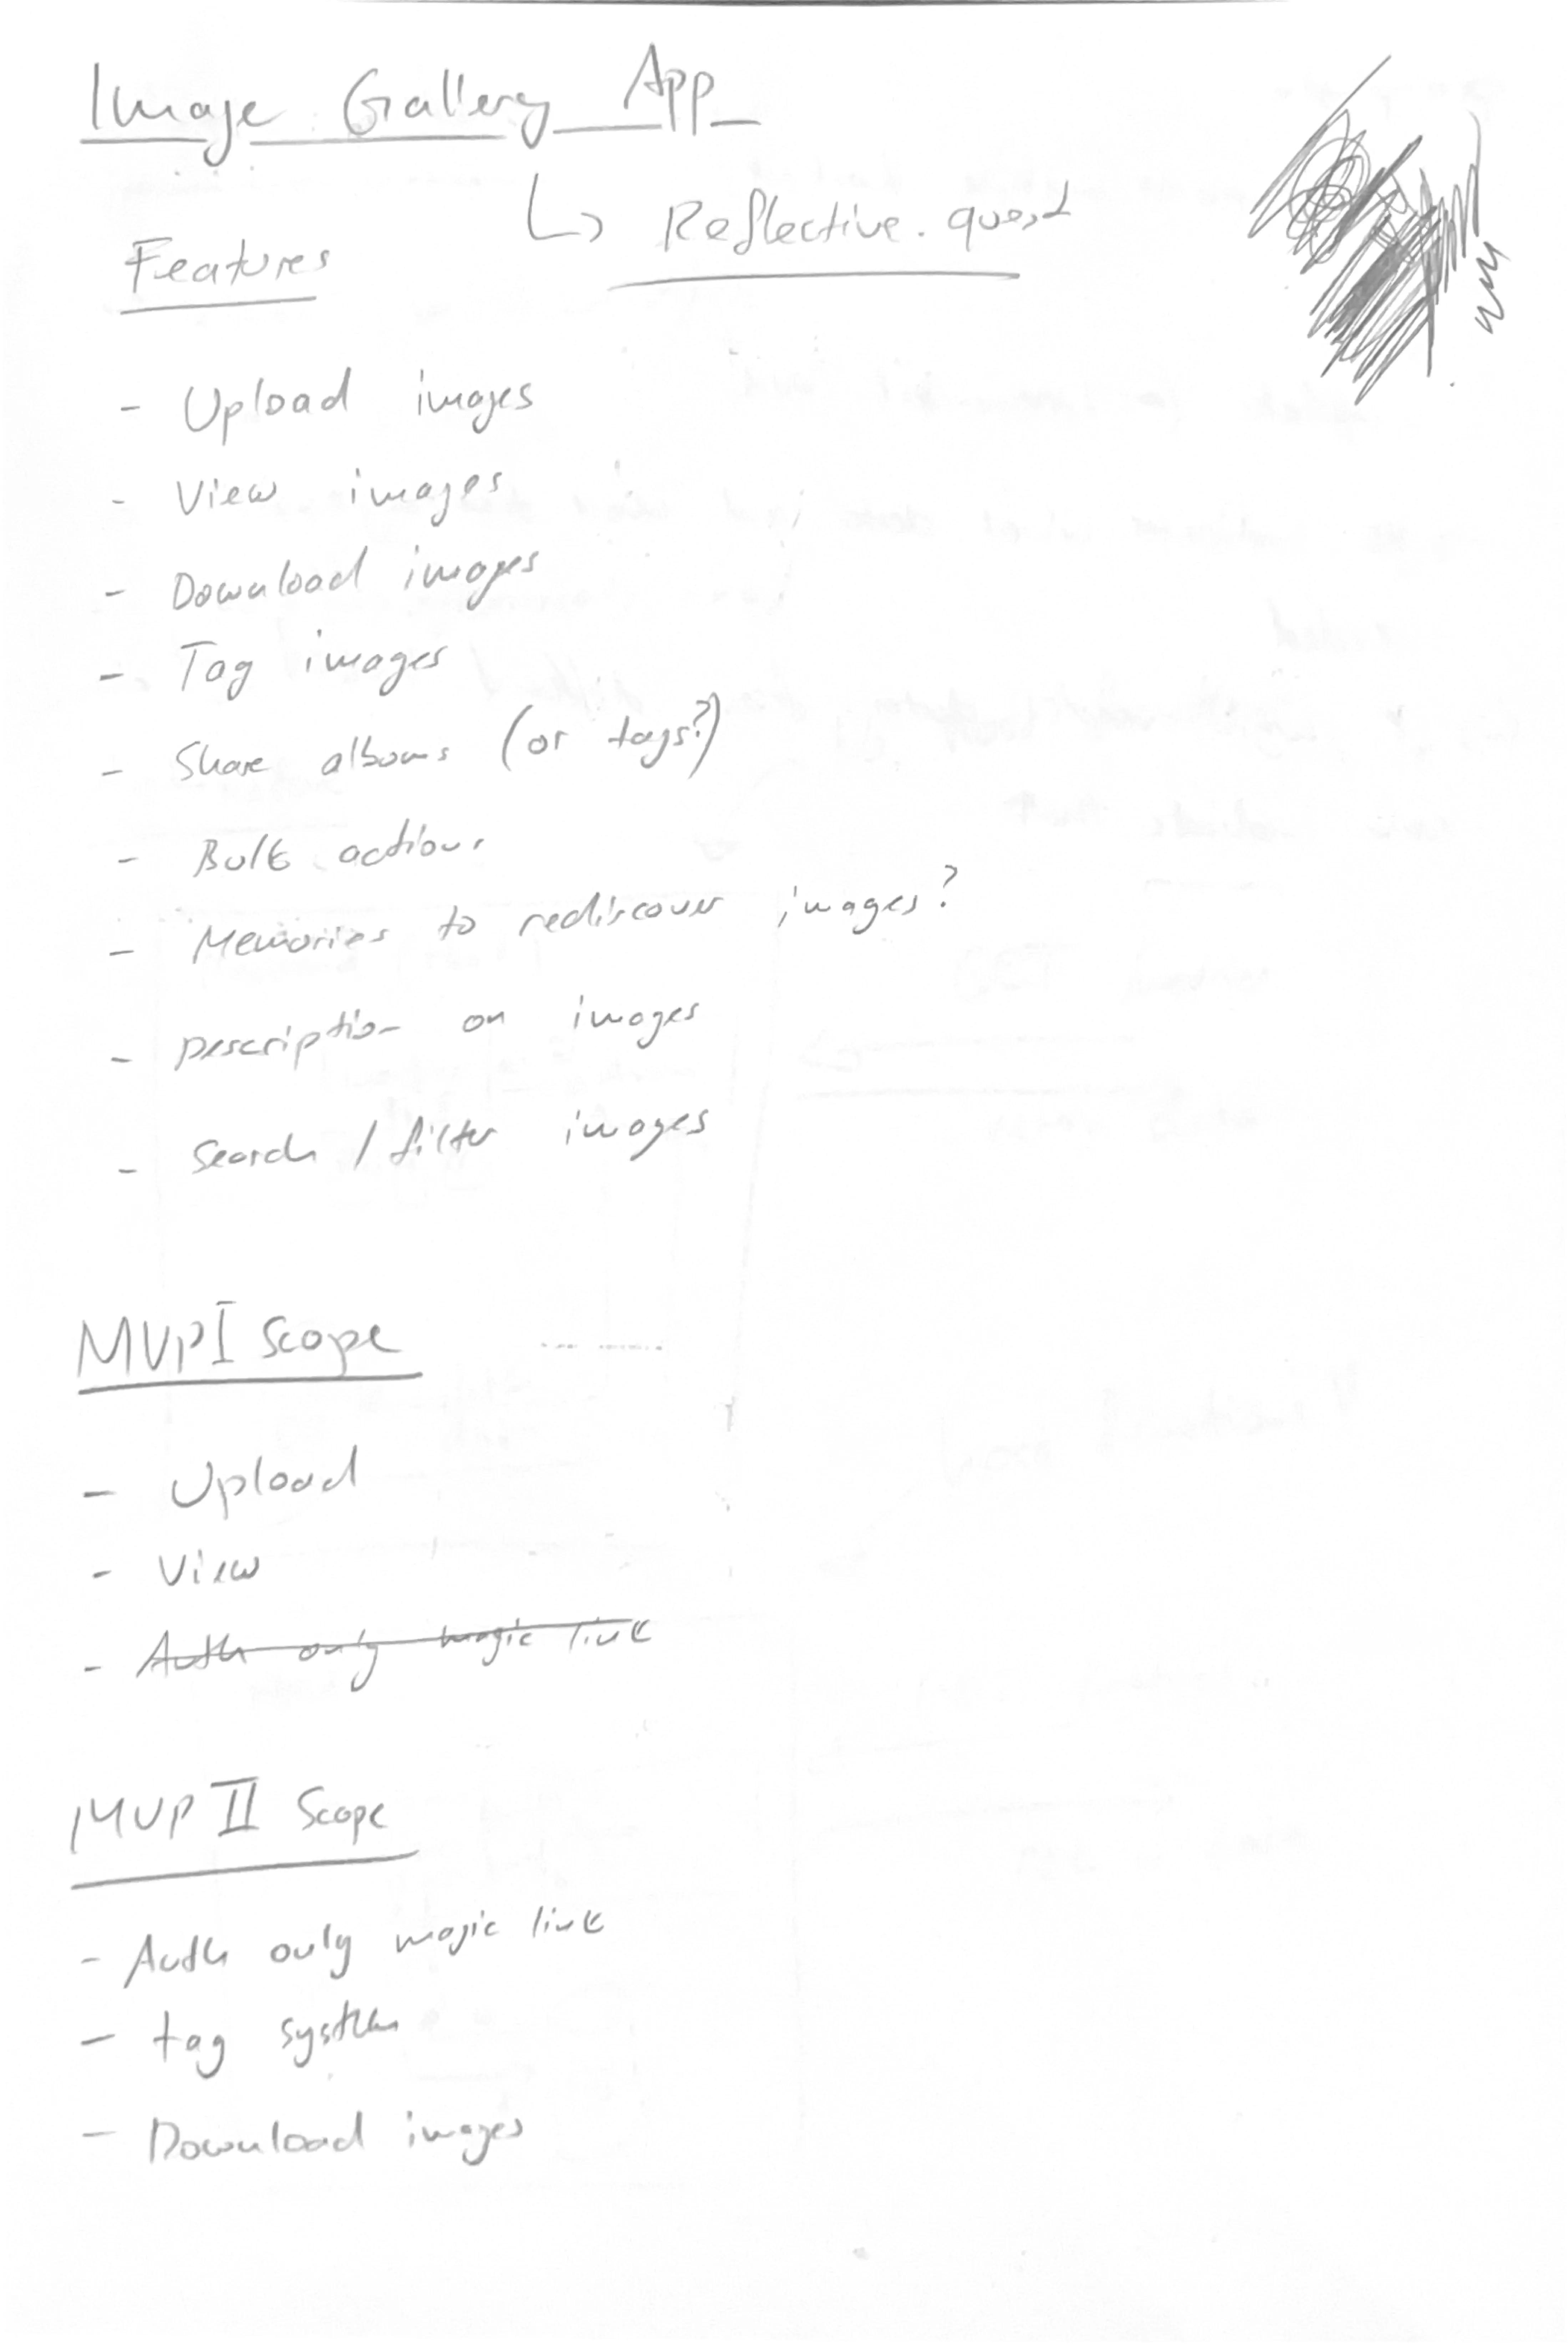 Image Gallery App
↳ Reflective.quest
Features
- Upload images
- View images
- Download images
- Tag images
- Share albums (or tags?)
- Bulk actions
- Memories to rediscover images?
- Description on images
- Search / filter images
MVP I Scope
- Upload
- View
- Auth only magic link
MVP II Scope
- Auth only magic link
- tag system
- Download images